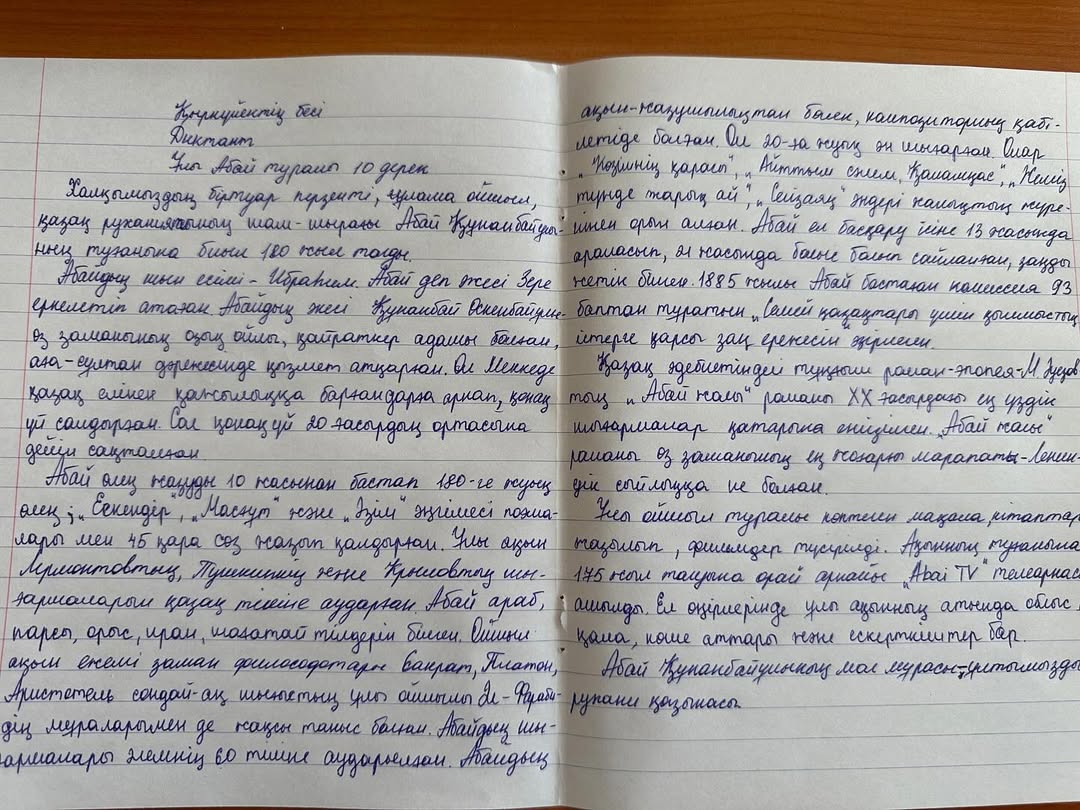 Қыркүйектің бесі
Диктант
Ұлы Абай туралы 10 дерек
Халқымыздың біртуар перзенті, ғұлама ойшыл,
қазақ руханиятының шам-шырағы Абай Құнанбайұлы-
ның туғанына биыл 180 жыл толды.
Абайдың шын есімі - Ибраһим. Абай деп әжесі Зере
еркелетіп атаған. Абайдың әкесі Құнанбай Өскенбайұлы-
өз заманының озық ойлы, қайраткер адамы болған,
аға-сұлтан дәрежесінде қызмет атқарған. Ол Меккеде
қазақ елінен қажылыққа барғандарға арнап, қонақ
үй салдырған. Сол қонақ үй 20 ғасырдың ортасына
дейін сақталған
Абай өлең жазуды 10 жасынан бастап 180-ге жуық
өлең, „Ескендір", „Масғұт" және „Әзім" әңгімесі поэма-
лары мен 45 қара сөз жазып қалдырған. Ұлы ақын
Лермонтовтың, Пушкиннің және Крыловтың шы-
ғармаларын қазақ тіліне аударған. Абай араб,
парсы, орыс, иран, шағатай тілдерін білген. Ойшыл
ақын ежелгі заман философтары Сократ, Платон,
Аристотель сондай-ақ шығыстың ұлы ойшылы Әл-Фараби-
дің мұраларымен де жақсы таныс болған. Абайдың шы-
ғармалары әлемнің 60 тіліне аударылған. Абайдың
ақын-жазушылықтан бөлек, композиторлық қабі-
летіде болған. Ол 20-ға жуық ән шығарған. Олар
„Көзімнің қарасы", „Айттым сәлем, Қаламқас", „Желсіз
түнде жарық ай", „Сегізаяқ" әндері халықтың жүре-
гінен орын алған. Абай ел басқару ісіне 13 жасында
араласып, 21 жасында болыс болып сайланған, заңды
жетік білген. 1885 жылы Абай бастаған комиссия 93
баптан тұратын „Семей қазақтары үшін қылмыстық
істерге қарсы заң ережесін әзірлеген.
Қазақ әдебиетіндегі тұңғыш роман-эпопея-М.Әуезов-
тың „Абай жолы" романы XX ғасырдағы ең үздік
шығармалар қатарына енгізілген. „Абай жолы"
романы өз заманының ең жоғарғы марапаты-Ленин-
дік сыйлыққа ие болған.
Ұлы ойшыл туралы көптеген мақала, кітаптар
жазылып, фильмдер түсірілді. Ақынның туғанына
175 жыл толуына орай арнайы „Abai TV" телеарнасы
ашылды. Ел өңірлерінде ұлы ақынның атында облыс,
қала, көше аттары және ескерткіштер бар.
Абай Құнанбайұлының мол мұрасы-ұлтымызды
рухани қазынасы.